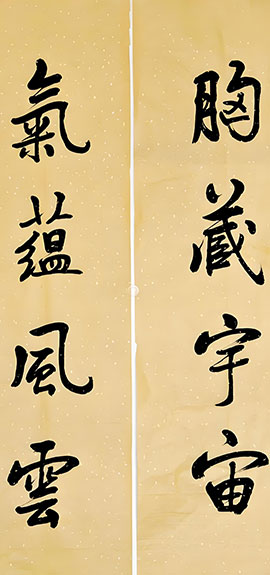 胸藏宇宙
氣蘊風雲